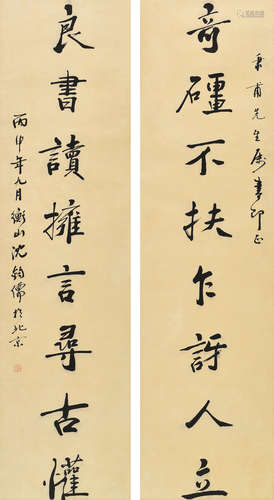 秉甫先生屬書即正
奇礓不扶乍訝人立
良書讀擁言尋古懽
丙申年九月衡山沈鈞儒於北京